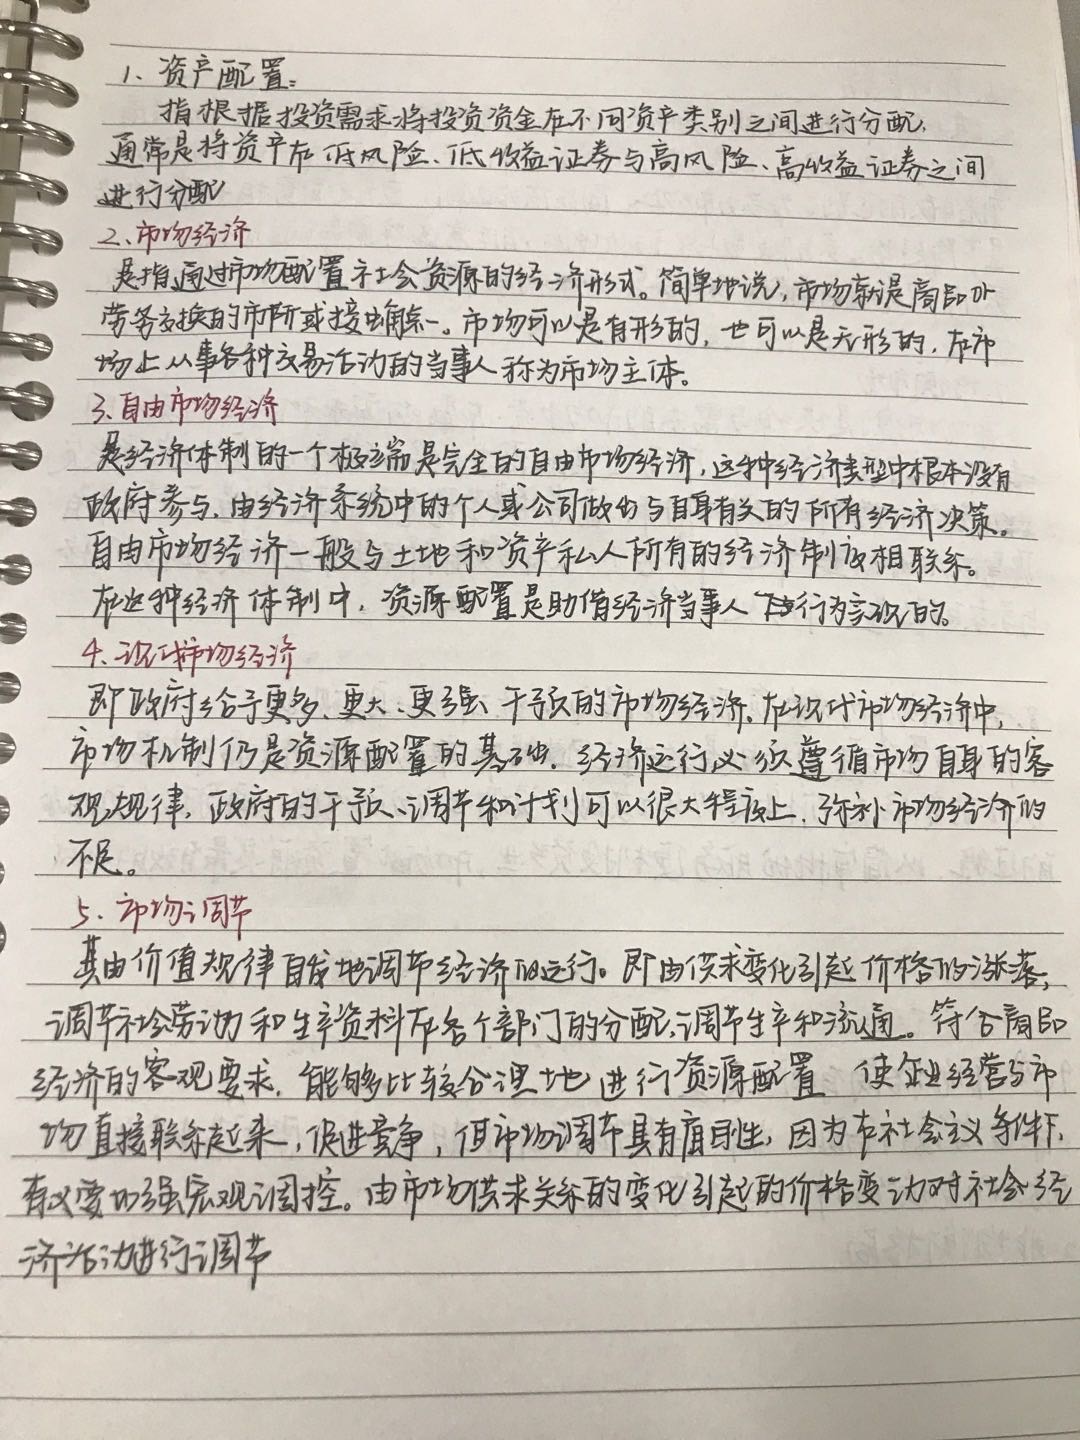 1、资产配置:
指根据投资需求将投资资金在不同资产类别之间进行分配,
通常是将资产在低风险、低收益证券与高风险、高收益证券之间
进行分配
2、市场经济
是指通过市场配置社会资源的经济形式。简单地说,市场就是商品或
劳务交换的市所或接触。市场可以是有形的,也可以是无形的,在市
场上从事各种交易活动的当事人称为市场主体。
3、自由市场经济
是经济体制的一个极端是完全的自由市场经济,这种经济类型中根本没有
政府参与,由经济系统中的个人或公司做出与自身有关的所有经济决策。
自由市场经济一般与土地和资产私人所有的经济制度相联系。
在这种经济体制中,资源配置是助借经济当事人行为实现的。
4、现代市场经济
即政府给予更多、更大、更强、干预的市场经济。在现代市场经济中,
市场机制仍是资源配置的基础,经济运行必须遵循市场自身的客
观规律,政府的干预、调节和计划可以很大程度上,弥补市场经济的
不足。
5、市场调节
其由价值规律自发地调节经济的运行。即由供求变化引起价格的涨落,
调节社会劳动力和生产资料在各个部门的分配,调节生产和流通。符合商品
经济的客观要求,能够比较合理地进行资源配置 使企业经营与市
场直接联系起来,促进竞争,但市场调节具有盲目性,因为在社会主义条件下,
有必要加强宏观调控。由市场供求关系的变化引起的价格变动对社会经
济活动进行调节